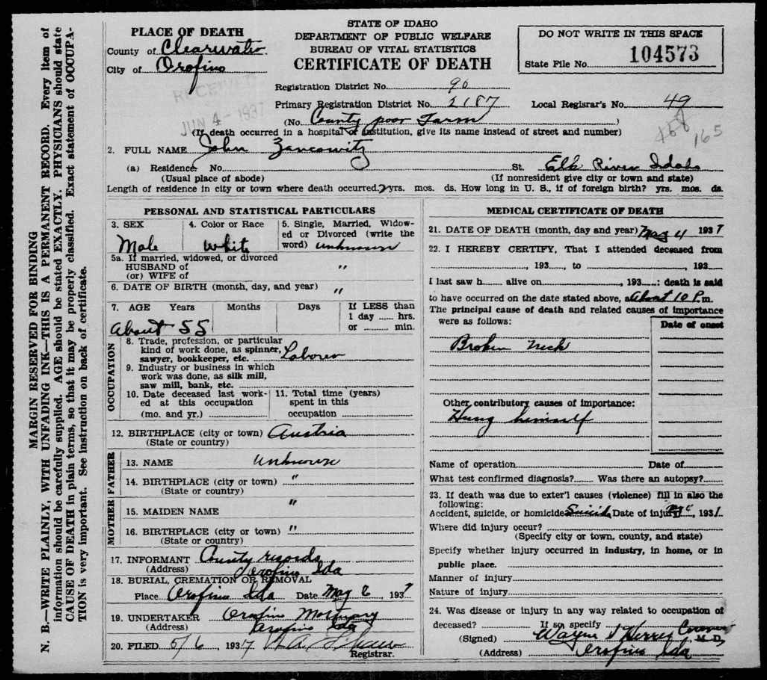 STATE OF IDAHO
DEPARTMENT OF PUBLIC WELFARE
BUREAU OF VITAL STATISTICS
CERTIFICATE OF DEATH
DO NOT WRITE IN THIS SPACE
State File No. 104573
PLACE OF DEATH
County of Clearwater
City of Orofino
RECEIVED
JUN 4 - 1937
Registration District No. 90
Primary Registration District No. 2187
Local Regisrar's No. 49
(No. County poor Farm)
(If death occurred in a hospital or institution, give its name instead of street and number)
468 165
2. FULL NAME John Zancowitz
(a) Residence No. St. Elk River Idaho
(Usual place of abode) (If nonresident give city or town and state)
Length of residence in city or town where death occurred. yrs. mos. ds. How long in U. S., if of foreign birth? yrs. mos. ds.
PERSONAL AND STATISTICAL PARTICULARS
3. SEX
Male
4. Color or Race
Whit
5. Single, Married, Widow-
ed or Divorced (write the
word) unknown
5a. If married, widowed, or divorced
HUSBAND of
(or) WIFE of "
6. DATE OF BIRTH (month, day, and year) "
7. AGE Years Months Days If LESS than
1 day hrs.
or min.
About 55
OCCUPATION
8. Trade, profession, or particular
kind of work done, as spinner,
sawyer, bookkeeper, etc. Laborer
9. Industry or business in which
work was done, as silk mill,
saw mill, bank, etc.
10. Date deceased last work-
ed at this occupation
(mo. and yr.)
11. Total time (years)
spent in this
occupation
12. BIRTHPLACE (city or town) Austria
(State or country)
FATHER
13. NAME Unknown
14. BIRTHPLACE (city or town) "
(State or country)
MOTHER
15. MAIDEN NAME "
16. BIRTHPLACE (city or town) "
(State or country)
17. INFORMANT County records
(Address) Orofino Ida
18. BURIAL, CREMATION OR REMOVAL
Place Orofino Ida Date May 6 1937
19. UNDERTAKER Orofino Mortuary
(Address) Orofino Ida
20. FILED 5/6, 1937
Registrar.
MEDICAL CERTIFICATE OF DEATH
21. DATE OF DEATH (month, day and year) May 4 1937
22. I HEREBY CERTIFY, That I attended deceased from
, 193 to , 193
I last saw h alive on , 193 : death is said
to have occurred on the date stated above, at About 10 P.m.
The principal cause of death and related causes of importance
were as follows:
Date of onset
Broken neck
Other contributory causes of importance:
Hung himself
Name of operation Date of
What test confirmed diagnosis? Was there an autopsy?
23. If death was due to exter'l causes (violence) fill in also the
following:
Accident, suicide, or homicide Suicide Date of injury , 193
Where did injury occur?
(Specify city or town, county, and state)
Specify whether injury occurred in industry, in home, or in
public place.
Manner of injury
Nature of injury
24. Was disease or injury in any way related to occupation of
deceased? If so specify
(Signed) Wayne Coroner M.D.
(Address) Orofino Ida
MARGIN RESERVED FOR BINDING
N. B.—WRITE PLAINLY, WITH UNFADING INK—THIS IS A PERMANENT RECORD. Every item of
information should be carefully supplied. AGE should be stated EXACTLY. PHYSICIANS should state
CAUSE OF DEATH in plain terms, so that it may be properly classified. Exact statement of OCCUPA-
TION is very important. See instruction on back of certificate.